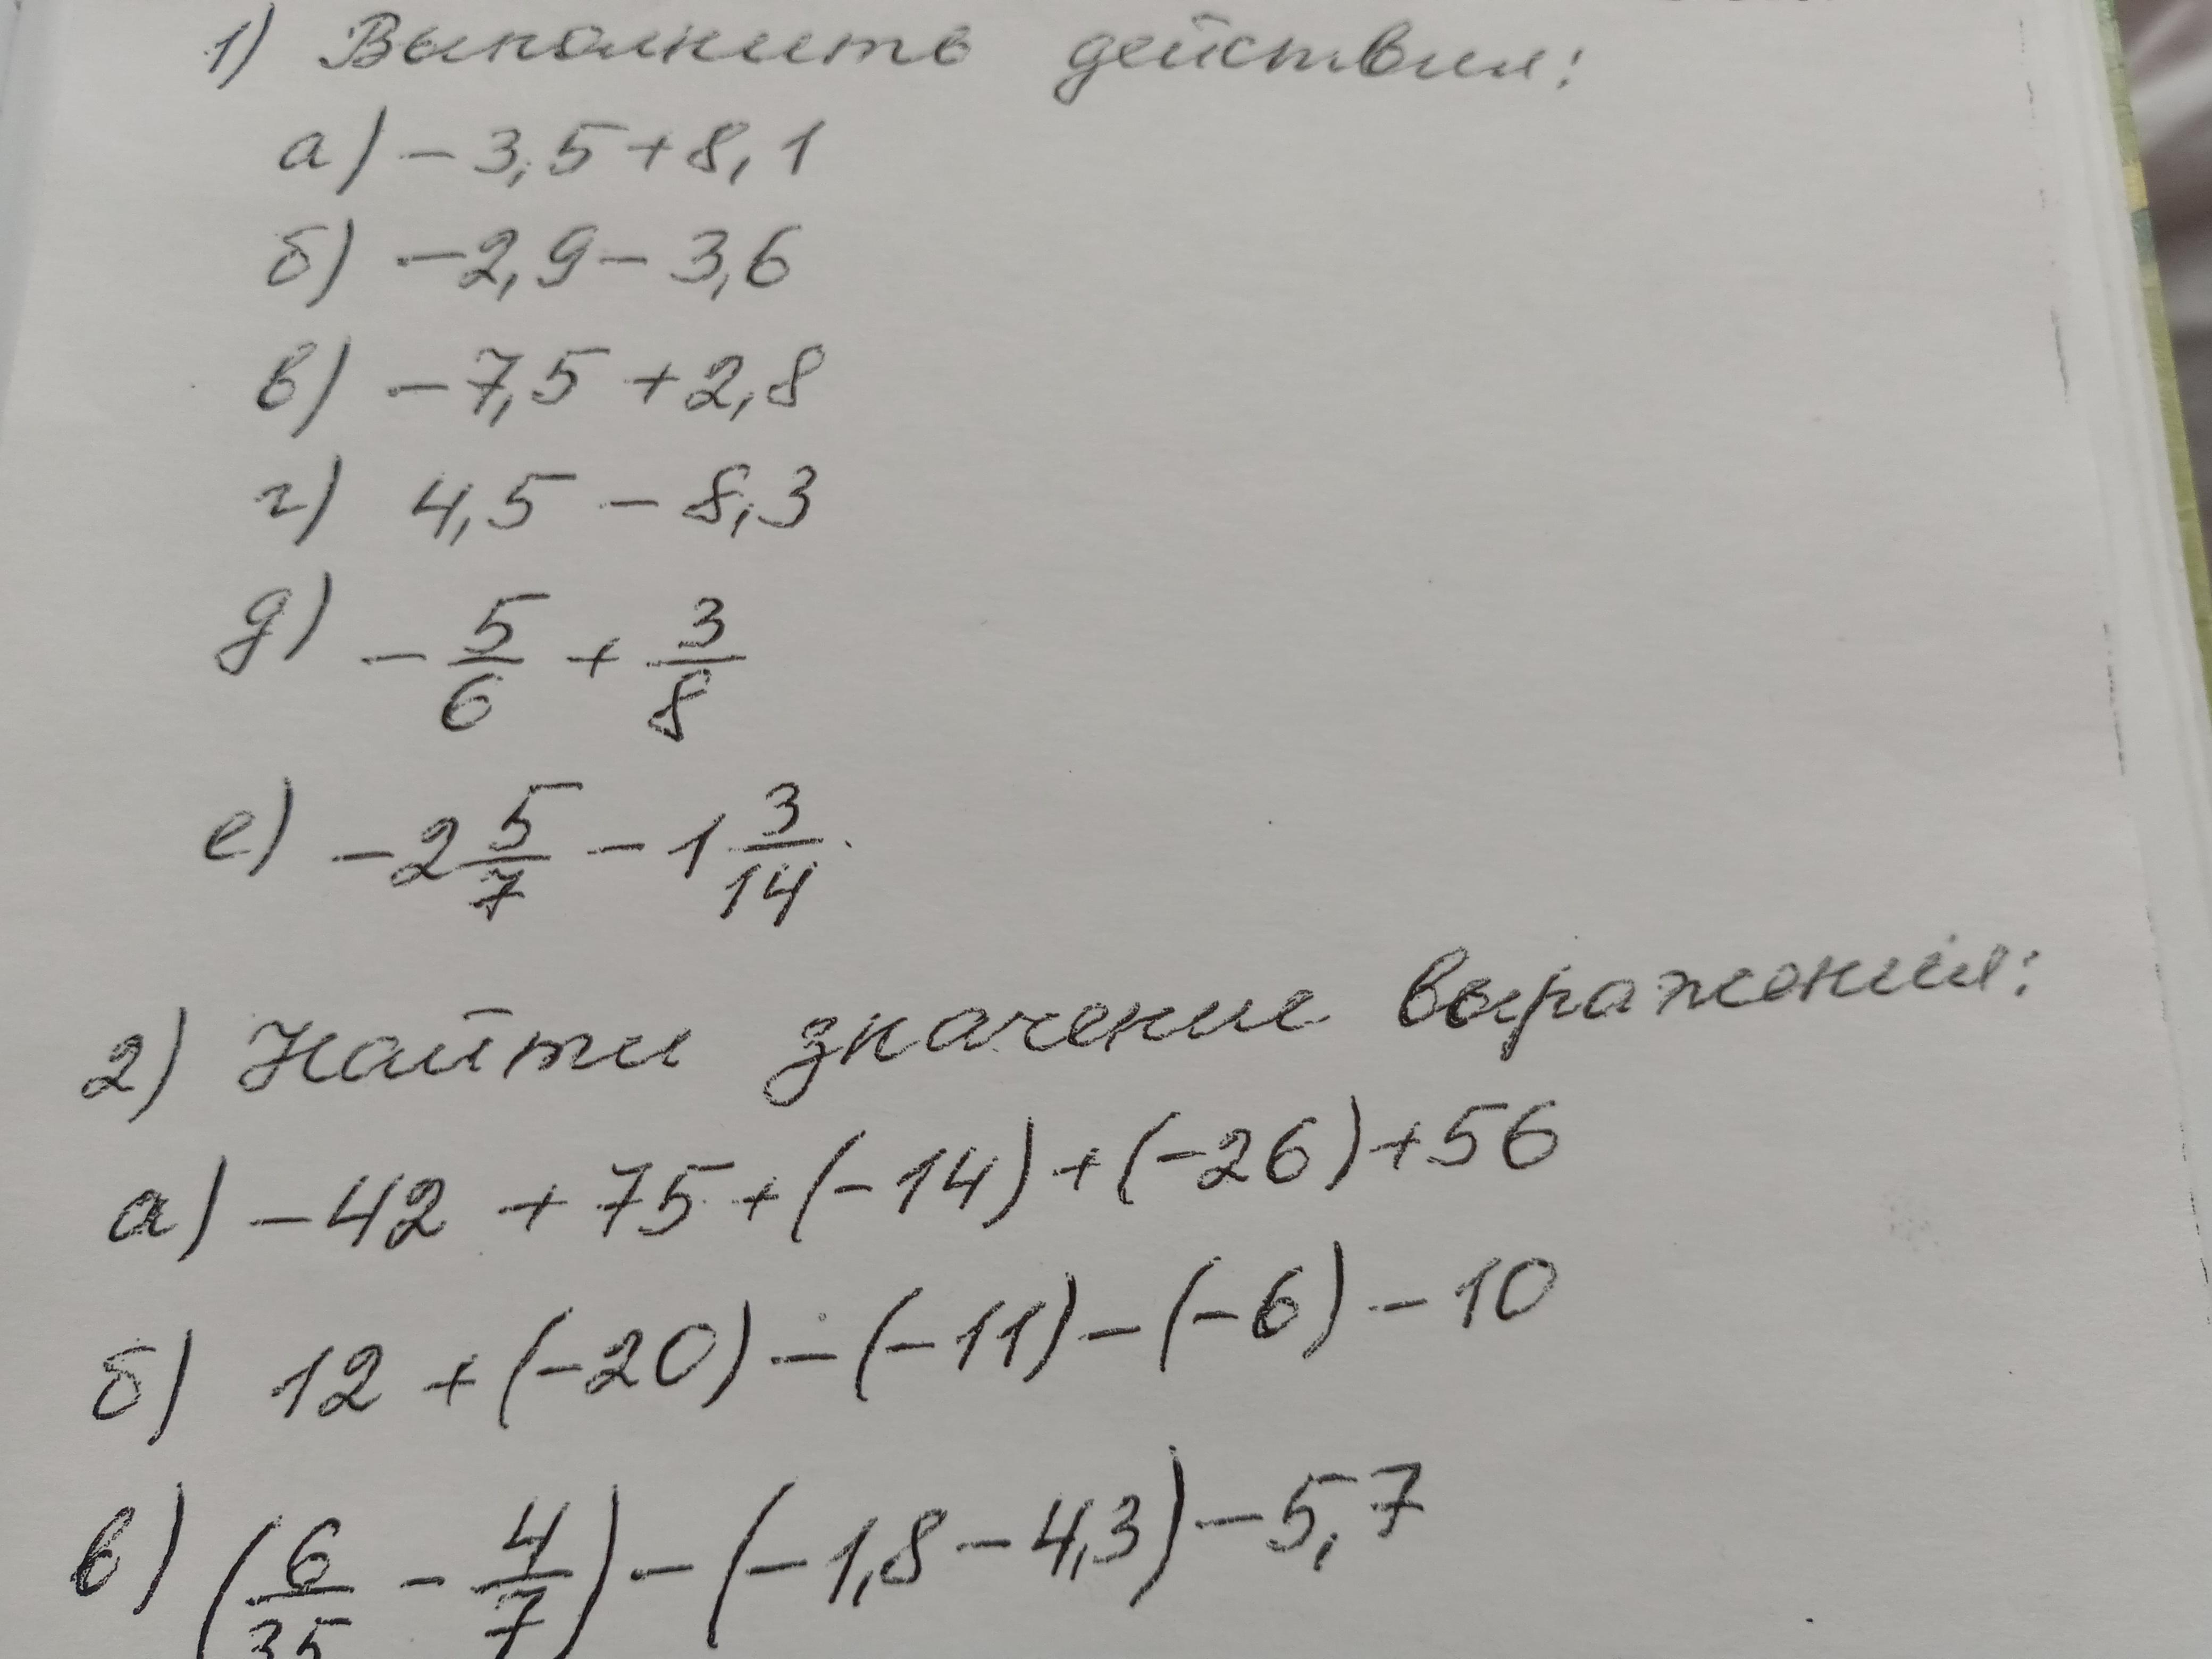 1) Выполнить действия:
а) -3,5+8,1
б) -2,9-3,6
в) -7,5+2,8
г) 4,5-8,3
д) -5/6 + 3/8
е) -2 5/7 - 1 3/14
2) Найти значение выражения:
а) -42+75+(-14)+(-26)+56
б) 12+(-20)-(-11)-(-6)-10
в) (6/35 - 4/7)-(-1,8-4,3)-5,7